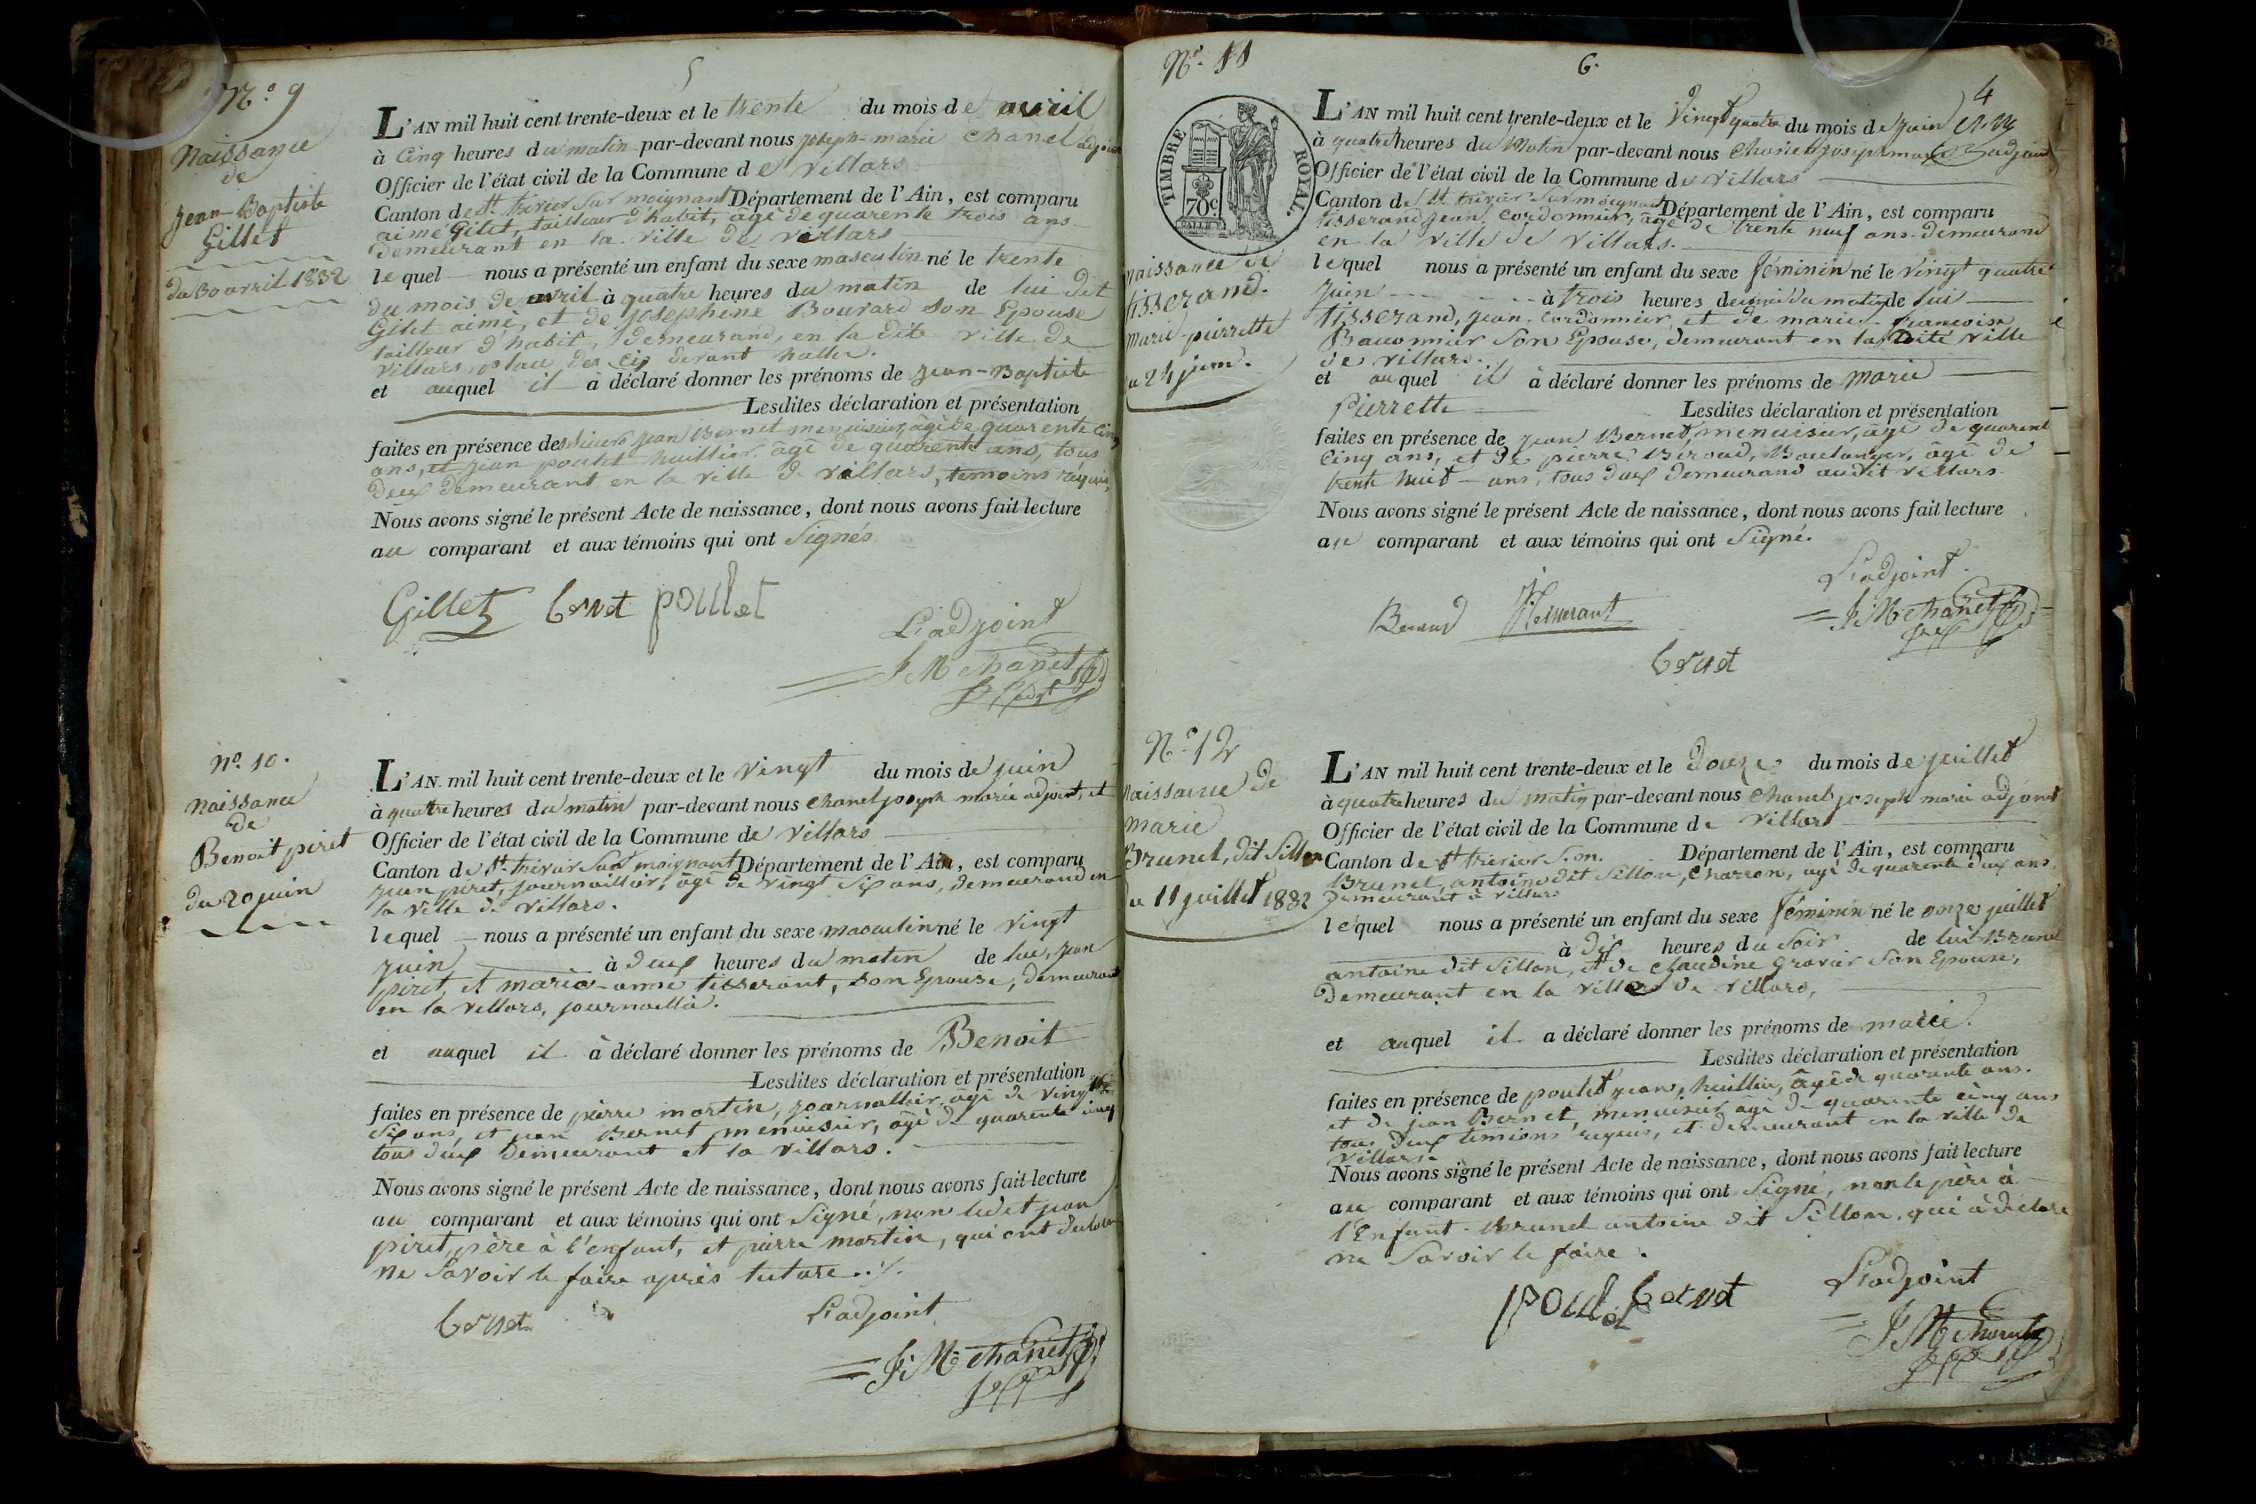 5
N.° 9
Naissance
de
Jean-Baptiste
Gillet
du 30 avril 1832
L'AN mil huit cent trente-deux et le trente du mois de avril
à cinq heures du matin par-devant nous joseph-marie chanel adjoint
Officier de l'état civil de la Commune de villars
Canton de St. trivier sur moignant Département de l'Ain, est comparu
aimé Gilet, tailleur d'habit, âgé de quarente trois ans
demeurant en la ville de villars
lequel nous a présenté un enfant du sexe masculin né le trente
du mois de avril à quatre heures du matin de lui dit
Gilet aimé, et de josephine Bouvard son Epouse
tailleur d'habit, demeurand, en la dite ville de
villars, place des devant halle.
et auquel il à déclaré donner les prénoms de jean-Baptiste
Lesdites déclaration et présentation
faites en présence de jean Bernet menuisier, âgé de quarente cinq
ans, et jean poulet huillier, âgé de quarente ans, tous
deux demeurant en la ville de villars, temoins requis,
Nous avons signé le présent Acte de naissance, dont nous avons fait lecture
au comparant et aux témoins qui ont Signés
Gillet bernet poullet
L'adjoint
J M chanel
N° 10.
naissance
de
Benoit piret
du 20 juin
L'AN mil huit cent trente-deux et le vingt du mois de juin
à quatre heures du matin par-devant nous chanel joseph marie adjoint, et
Officier de l'état civil de la Commune de villars
Canton de St. trivier sur moignant Département de l'Ain, est comparu
jean piret, journaillier, âgé de vingt six ans, demeurand en
la ville de villars.
lequel nous a présenté un enfant du sexe masculin né le vingt
juin à deux heures du matin de lui, jean
piret, et marie-anne tisserant, son Epouse, demeurant
en la villars, journaillié.
et auquel il à déclaré donner les prénoms de Benoit
Lesdites déclaration et présentation
faites en présence de pierre martin, journallier, âgé de vingt
six ans, et jean Bernet menuisier, âgé de quarente cinq
tous deux demeurant et la villars.
Nous avons signé le présent Acte de naissance, dont nous avons fait lecture
au comparant et aux témoins qui ont Signé, non ledet jean
piret, père à l'enfant, et pierre martin, qui ont
ne Savoir le faire après
bernet
L'adjoint
J M chanel
N.° 11
6.
4
TIMBRE ROYAL.
70 c.
naissance de
tisserand.
marie-pierrette
24 juin.
L'AN mil huit cent trente-deux et le vingt quatre du mois de juin
à quatre heures du matin par-devant nous chanel joseph marie adjoint
Officier de l'état civil de la Commune de villars
Canton de St. trivier sur moignant Département de l'Ain, est comparu
tisserand jean, cordonnier, âgé de trente neuf ans demeurand
en la ville de villars.
lequel nous a présenté un enfant du sexe féminin né le vingt quatre
juin à trois heures demi du matin de lui
tisserand, jean, cordonnier, et de marie-francoise
son Epouse, demeurant en la dite ville
de villars.
et auquel il à déclaré donner les prénoms de marie
Pierrette
Lesdites déclaration et présentation
faites en présence de jean Bernet, menuisier, âgé de quarent
cinq ans, et de pierre Beroud, Boulanger, âgé de
trente huit ans, tous deux demeurand audit villars
Nous avons signé le présent Acte de naissance, dont nous avons fait lecture
au comparant et aux témoins qui ont Signé.
Beroud
Tisserant
L'adjoint.
J M chanel
bernet
N.° 12
naissance de
marie
Brunel, dit Sillon
11 juillet 1832
L'AN mil huit cent trente-deux et le douze du mois de juillet
à quatre heures du matin par-devant nous chanel joseph marie adjoint
Officier de l'état civil de la Commune de villars
Canton de St trivier S. m. Département de l'Ain, est comparu
Brunel, antoine dit Sillon, charron, âgé de quarente deux ans
demeurant à villars
lequel nous a présenté un enfant du sexe féminin né le onze juillet
à dix heures du soir de lui Brunel
antoine dit Sillon, et de claudine gravier son Epouse,
demeurant en la ville de villars,
et auquel il a déclaré donner les prénoms de marie.
Lesdites déclaration et présentation
faites en présence de poulet jean, huillier, âgé de quarante ans.
et de jean Bernet, menuisier âgé de quarente cinq ans
tous deux temions requis, et demeurant en la ville de
villars.
Nous avons signé le présent Acte de naissance, dont nous avons fait lecture
au comparant et aux témoins qui ont Signé, non le père à
l'Enfant. Brunel antoine dit Sillon, qui à déclaré
ne Savoir le faire.
poulet bernet
L'adjoint
J M chanel